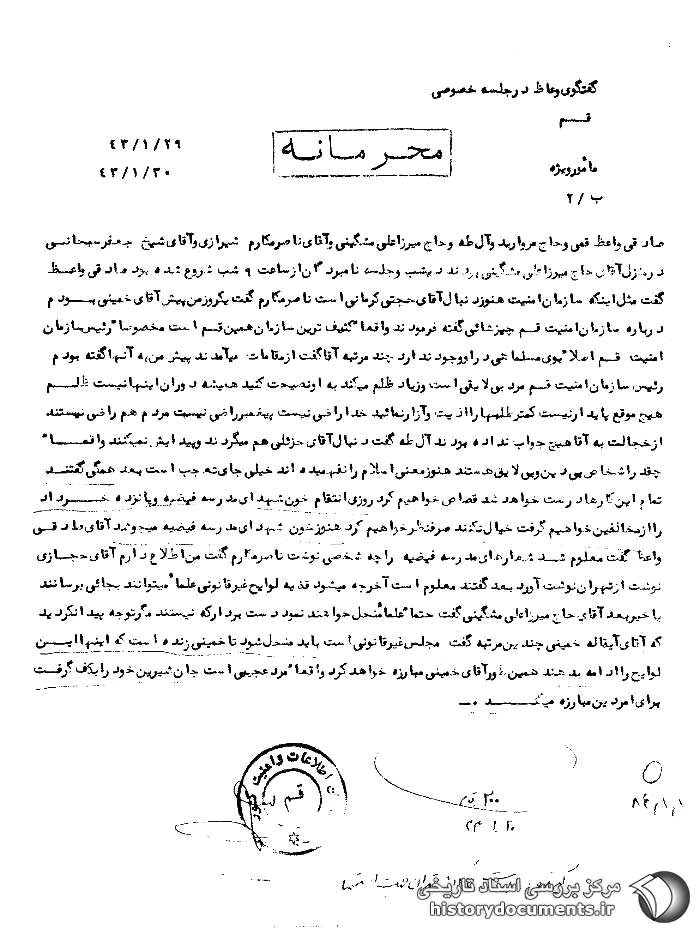 گفتگوی وعاظ در جلسه خصوصی
قم
۴۳/۱/۲۹
محرمانه
۴۳/۱/۳۰
مأمور ویژه
ب /۲
صادقی واعظ قمی و حاج مروارید و آل طه و حاج میرزا علی مشگینی و آقای ناصر مکارم شیرازی و آقای شیخ جعفر سبحانی
در منزل آقای حاج میرزا علی مشگینی بودند دیشب وجلسه نامبردگان از ساعت ۹ شب شروع شده بود صادقی واعظ
گفت مثل اینکه سازمان امنیت هنوز دنبال آقای حجتی کرمانی است ناصر مکارم گفت یکروز من پیش آقای خمینی بودم
درباره سازمان امنیت قم چیزهائی گفته فرمودند واقعا" کثیف ترین سازمان همین قم است مخصوصا" رئیس سازمان
امنیت قم اصلا" بوی مسلمانی در او وجود ندارد چند مرتبه آقا گفت از مقامات میآمدند پیش من به آنها گفته بودم
رئیس سازمان امنیت قم مرد بی لایقی است وزیاد ظلم میکند به او نصیحت کنید همیشه دوران اینها نیست ظلم
هیچ موقع پایدار نیست کمتر طلبهها را اذیت و آزار نمائید خدا راضی نیست پیغمبر راضی نیست مردم هم راضی نیستند
از خجالت به آقا هیچ جواب نداده بودند آل طه گفت دنبال آقای خزئلی هم میگردند وپیدایش نمیکنند واقعا"
چقدر اشخاص بی دین وبی لایقی هستند هنوز معنی اسلام را نفهمیده اند خیلی جای تعجب است بعد همگی گفتند
تمام این کارها درست خواهد شد قصاص خواهیم کرد روزی انتقام خون شهدای مدرسه فیضیه وپانزده خرداد
را از مخالفین خواهیم گرفت خیال نکنند صرفنظر خواهیم کرد هنوز خون شهدای مدرسه فیضیه میجوشد آقای صادقی
واعظ گفت معلوم شد شعارهای مدرسه فیضیه را چه شخصی نوشت ناصر مکارم گفت من اطلاع دارم آقای حجازی
نوشت از تهران نوشت آورد بعد گفتند معلوم است آخر چه میشود قضیه لوایح غیرقانونی علما" میتوانند بجائی برسانند
یا خیر بعد آقای حاج میرزا علی مشگینی گفت حتما" علما" منحل خواهند نمود دست بردار که نیستند مگر توجه پیدا نکردید
که آقای آیتاله خمینی چندین مرتبه گفت مجلس غیرقانونی است باید منحل شود تا خمینی زنده است که اینها این
لوایح را ادامه بدهند همین طور آقای خمینی مبارزه خواهد کرد واقعا" مرد عجیبی است جان شیرین خود را بکف گرفت
برای امر دین مبارزه میکند .
اطلاعات و امنیت کشور
قم
مرکز بررسی اسناد تاریخی
historydocuments.ir